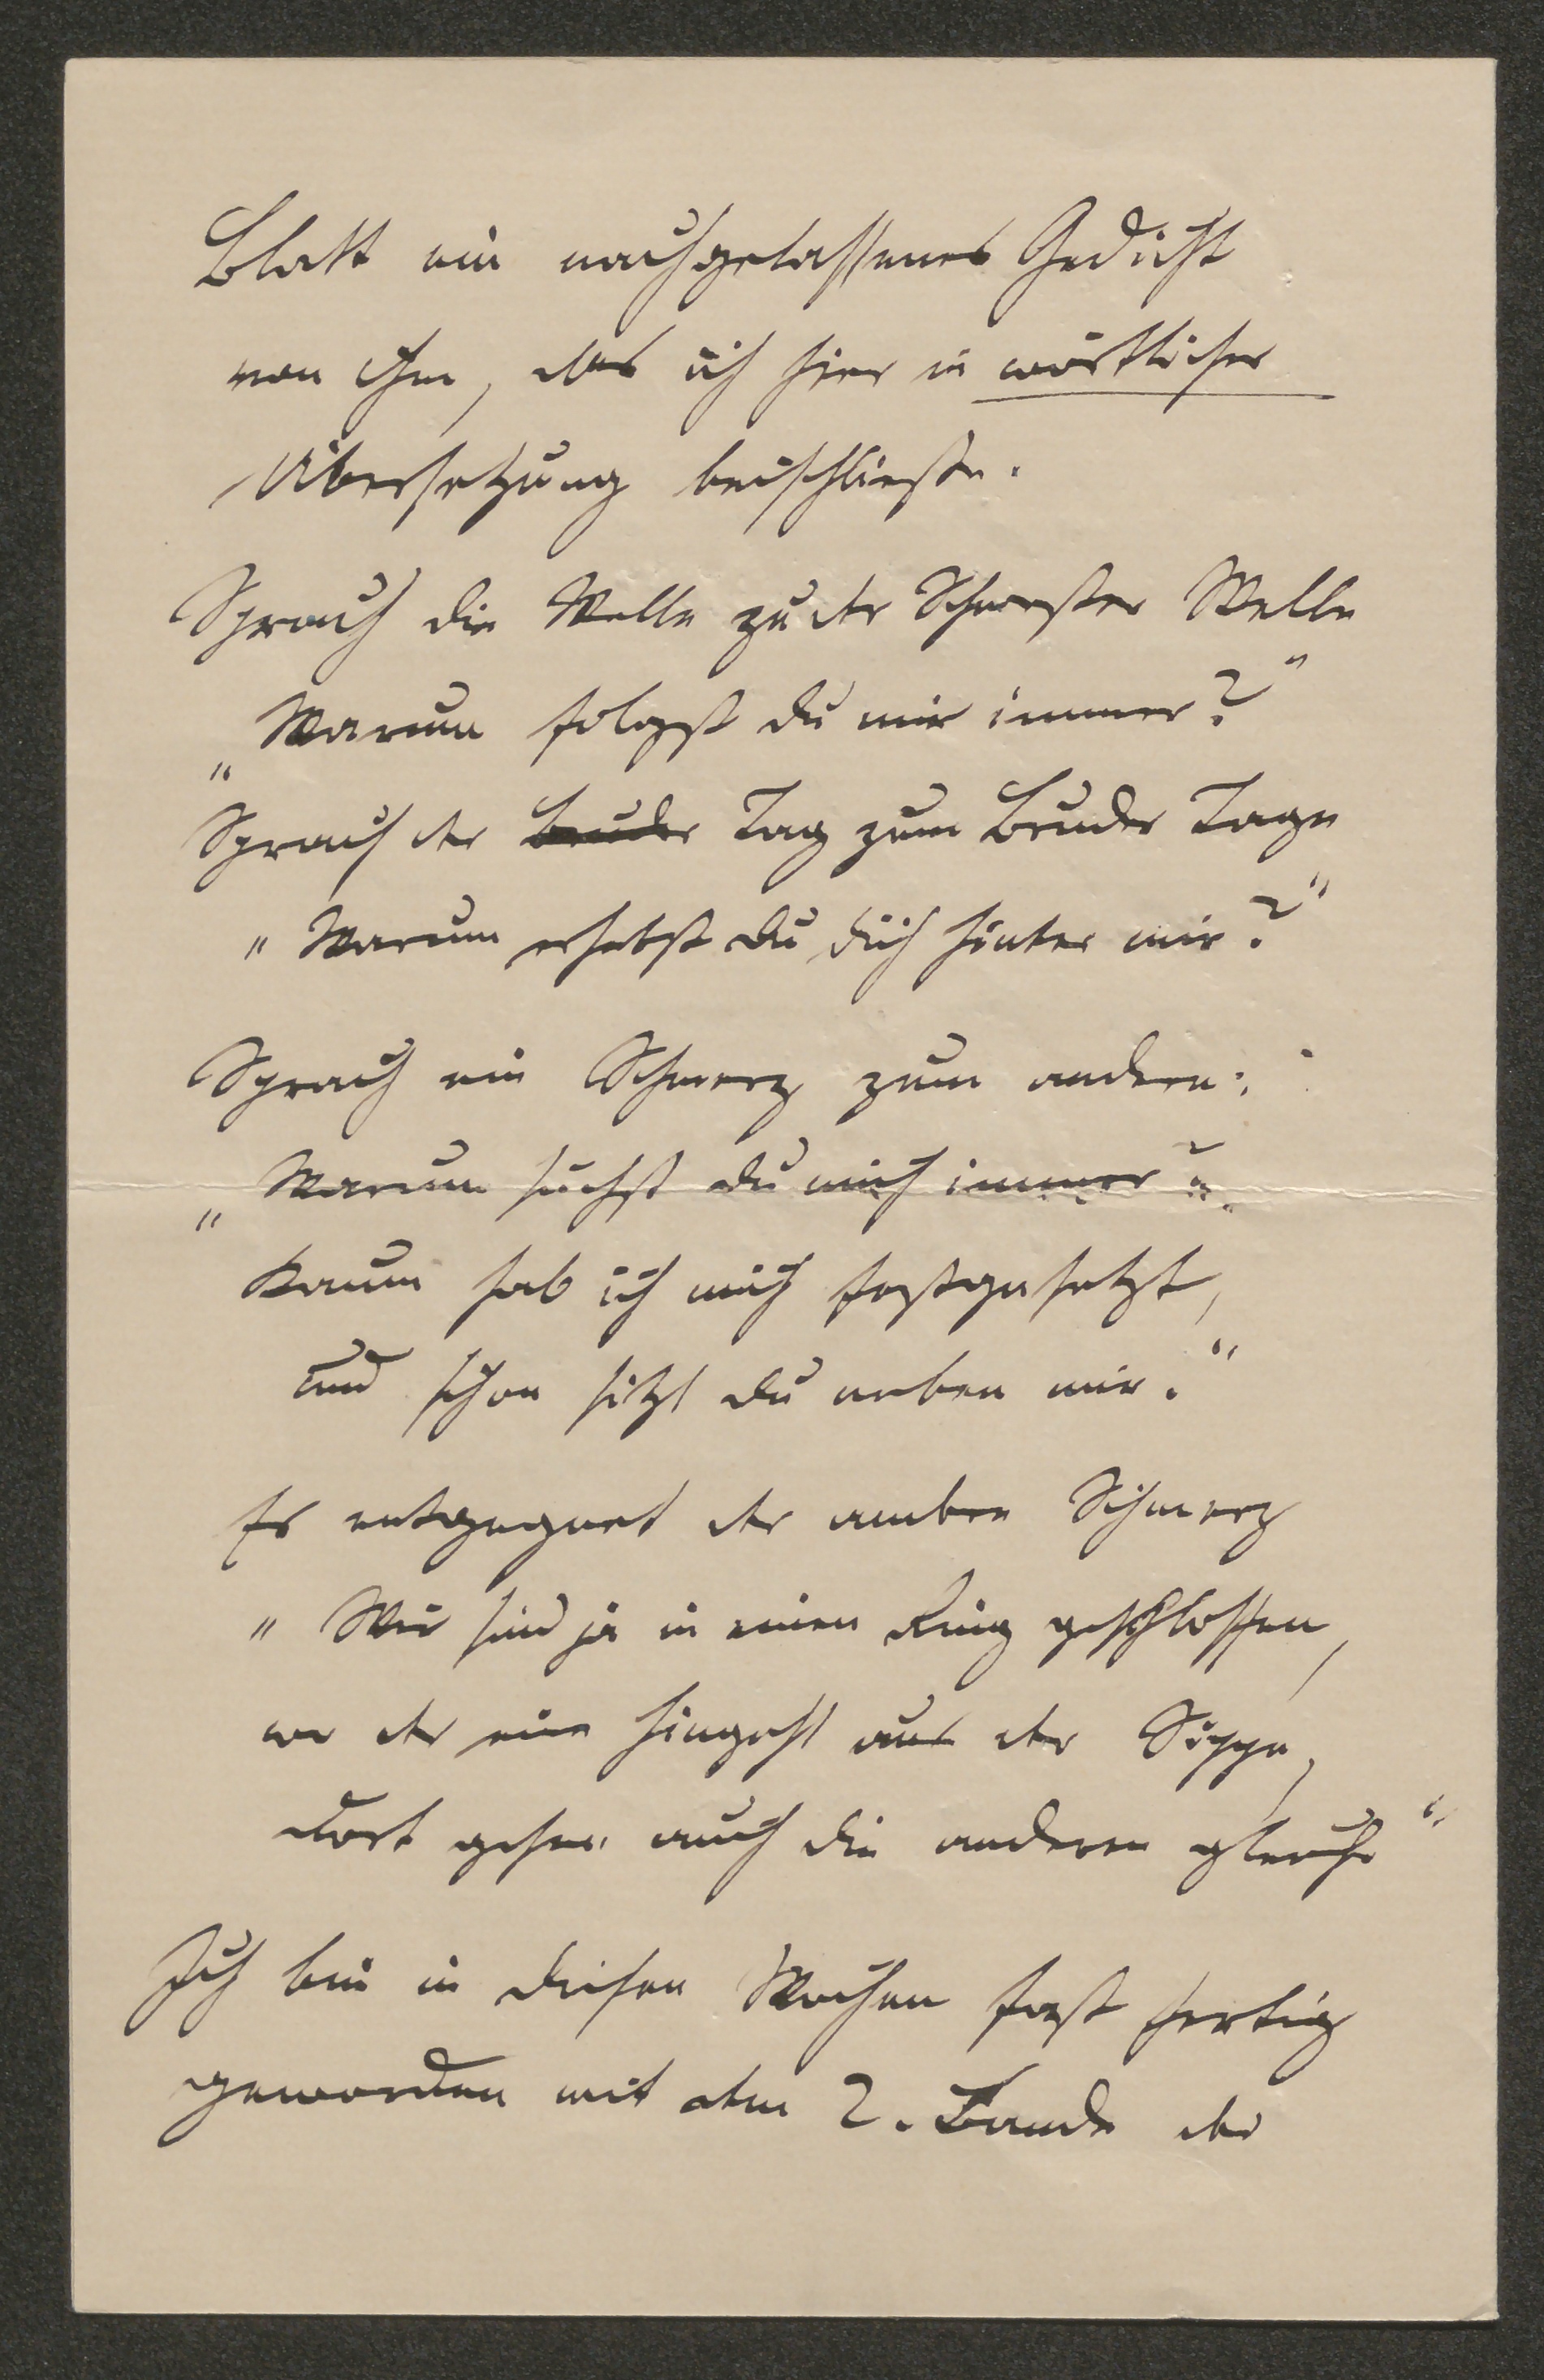 Blatt ein nachgelassenes Gedicht
von ihm, das ich hier in wörtlicher
Übersetzung beischließe.
Sprach die Welle zu der Schwester Welle
„Warum folgst du mir immer?“
Sprach der Bruder Tag zum Bruder Tage
„Warum erhebst du dich hinter mir?“
Sprach ein Schmerz zum andern:
„Warum suchst du mich immer?
Kaum hab ich mich festgesetzt,
und schon sitzt du neben mir.“
Es entgegnet der andere Schmerz
„Wir sind ja in einen Ring geschlossen,
wo der eine hingeht aus der Sippe,
dort gehen auch die anderen gleich“
Ich bin in diesen Wochen fast fertig
geworden mit dem 2. Bande der